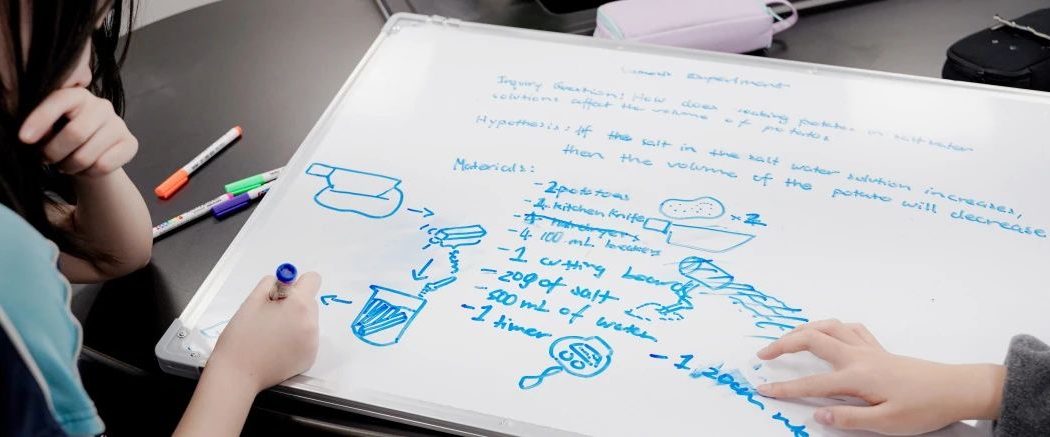 Experiment
Inquiry Question: How does soaking potatoes in saltwater
solutions affect the volume of potatoes
Hypothesis: If the salt in the salt water solution increases,
then the volume of the potato will decrease
Materials:
- 2 potatoes
×2
- 1 kitchen knife
- 4 100 mL beakers
- 1 cutting board
- 20g of salt
- 500 mL of water
- 1 timer
- 1, 20cm